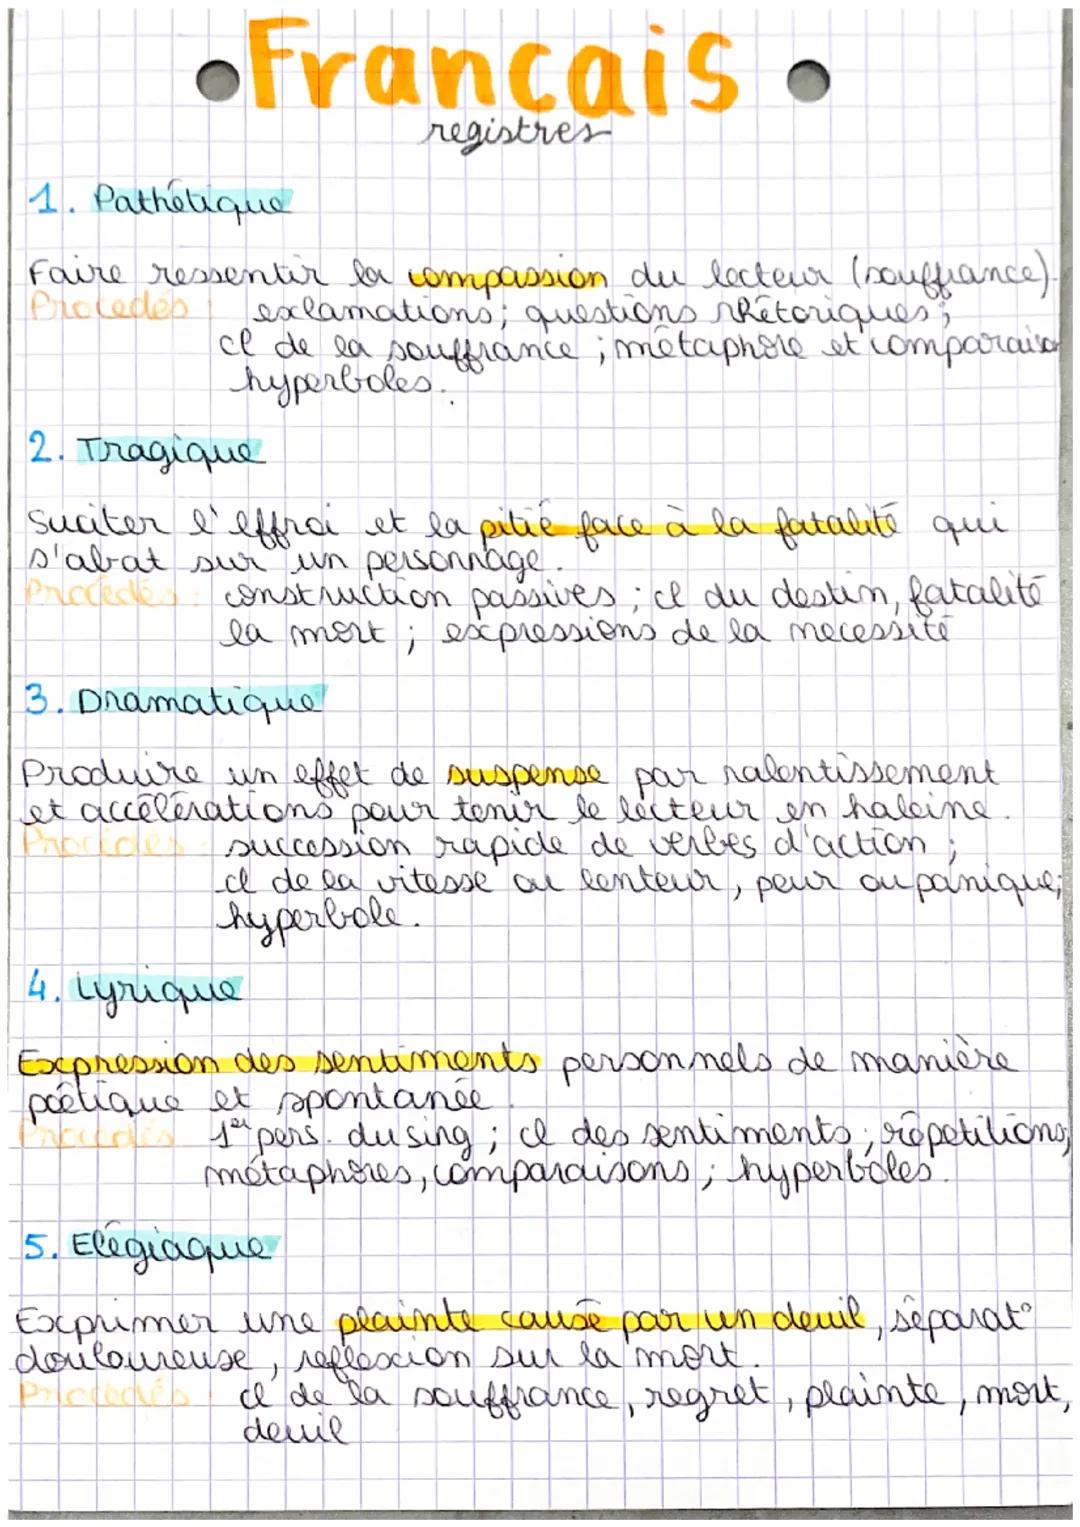 Francais
registres
1. Pathétique
Faire ressentir la compassion du lecteur (souffrance).
Procédés : exclamations ; questions rhétoriques ;
cl de la souffrance ; métaphore et comparaison
hyperboles.
2. Tragique
Suciter l'effroi et la pitié face à la fatalité qui
s'abat sur un personnage.
Procédés : construction passives ; cl du destin, fatalité
la mort ; expressions de la necessité
3. Dramatique
Produire un effet de suspense par ralentissement
et accélérations pour tenir le lecteur en haleine.
Procédés : succession rapide de verbes d'action ;
cl de la vitesse ou lenteur, peur ou panique ;
hyperbole.
4. Lyrique
Expression des sentiments personnels de manière
poétique et spontanée.
Procédés 1er pers. du sing ; cl des sentiments ; répétitions,
métaphores, comparaisons ; hyperboles.
5. Elégiaque
Exprimer une plainte causé par un deuil, séparat°
douloureuse, reflexion sur la mort.
Procédés : cl de la souffrance, regret, plainte, mort,
deuil